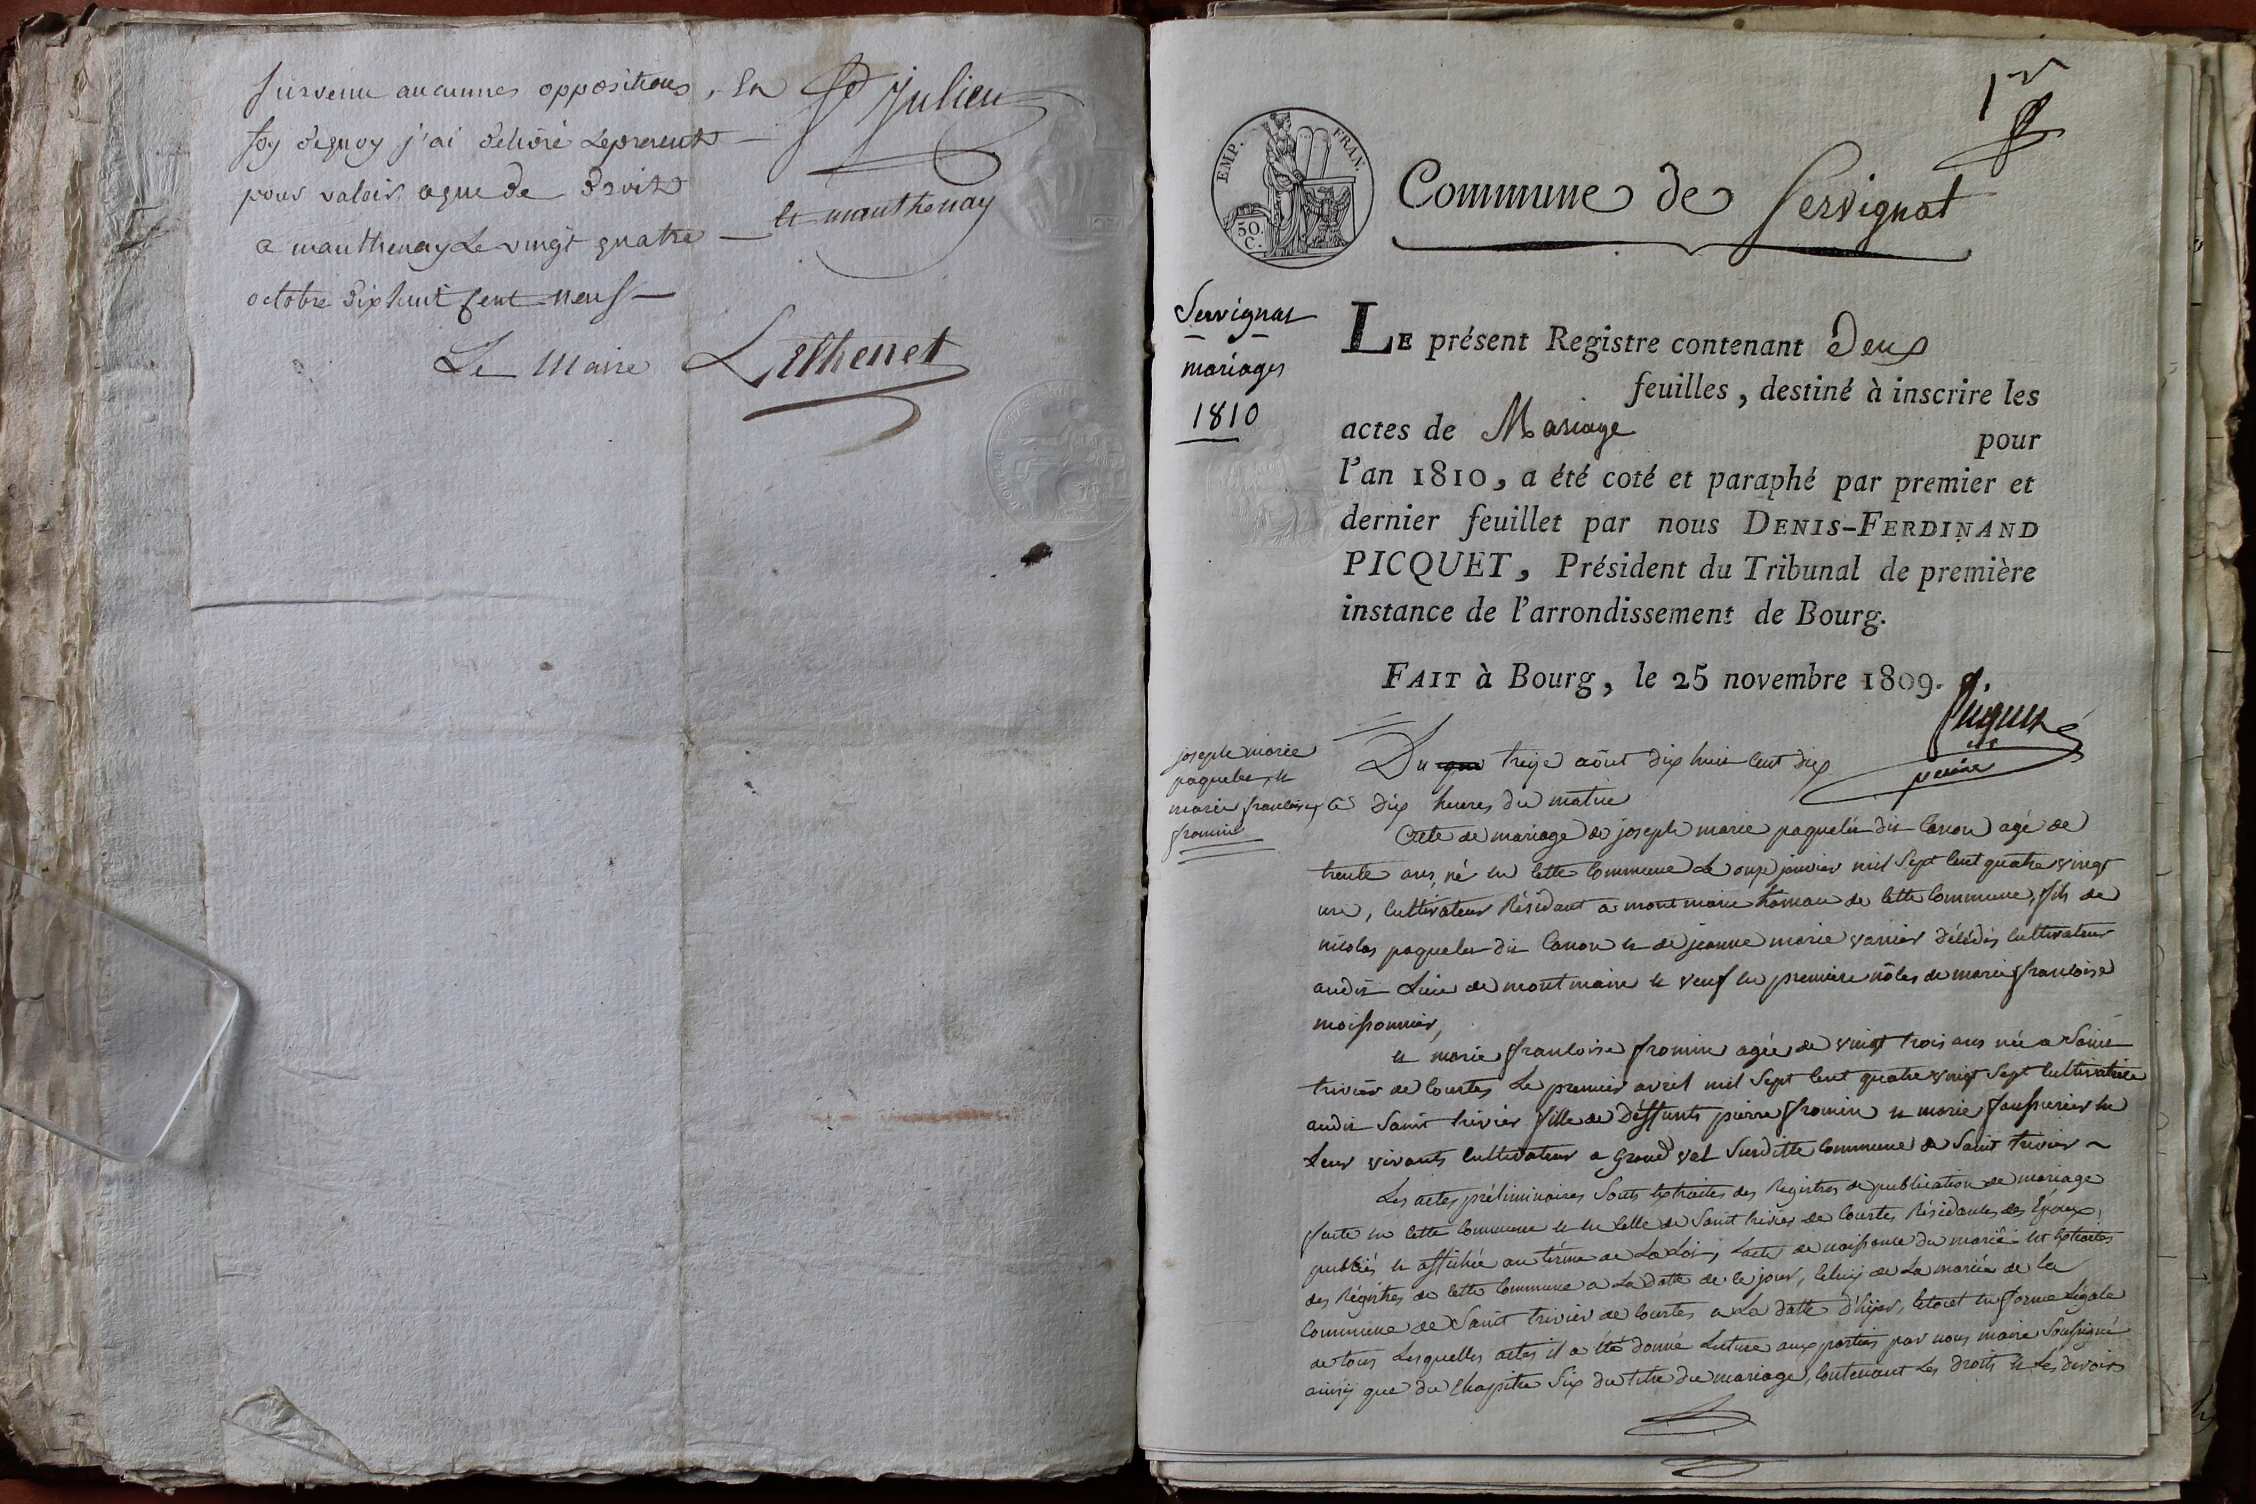 survenu aucunnes oppositions, En
foy dequoy j'ai delivré Le present
pour valoir aque de Droit
a manthenay Le vingt quatre
octobre Dixhuit cent neuf
St Julien
et manthenay
Le Maire Lethenet
1er
EMP. FRAN.
50.
C.
Commune de Servignat
Servignat
mariages
1810
LE présent Registre contenant Deux
feuilles, destiné à inscrire les
actes de Mariage pour
l'an 1810, a été coté et paraphé par premier et
dernier feuillet par nous DENIS-FERDINAND
PICQUET, Président du Tribunal de première
instance de l'arrondissement de Bourg.
FAIT à Bourg, le 25 novembre 1809.
Picquet
joseph marie
paquelet et
marie francoise
fromin
Du treize aôut dix huit cent dix
a dix heures du matin
Acte de mariage de joseph marie paquelet dit Canon agé de
trente ans, né en cette Commune Le onze janvier mil Sept cent quatre vingt
un, Cultivateur Résidant a mont main hameau de cette Commune, fils de
nicolas paquelet dit Canon et de jeanne marie varrier décédés cultivateur
audit Lieu de montmain et veuf en premiere nôces de marie francoise
moissonnier,
et marie francoise fromin agée de vingt trois ans née a Saint
trivier de Courtes Le premier avril mil Sept cent quatre vingt Sept Cultivatrice
audit Saint trivier fille de Deffunts pierre fromin et marie en
Leur vivants Cultivateur a grand val Susditte commune de Saint trivier
Les actes préliminaires Sont Extraits des Registres de publication de mariage
faite en cette Commune et en celle de Saint trivier de Courtes Résidances des Époux,
publiés et affichée au térme de La Loi, Lacte de naissance du marié est Extraites
des Registres de cette Commune a La datte de ce jour, celuy de La mariée de La
Commune de Saint trivier de Courtes a La datte d'hijer, Letout en forme Légale
de tous Lesquelles actes il a été donné Lecture aux parties par nous maire Soussigné
ainsy que du Chapitre Six du titre du mariage, Contenant Les droits et Les devoirs